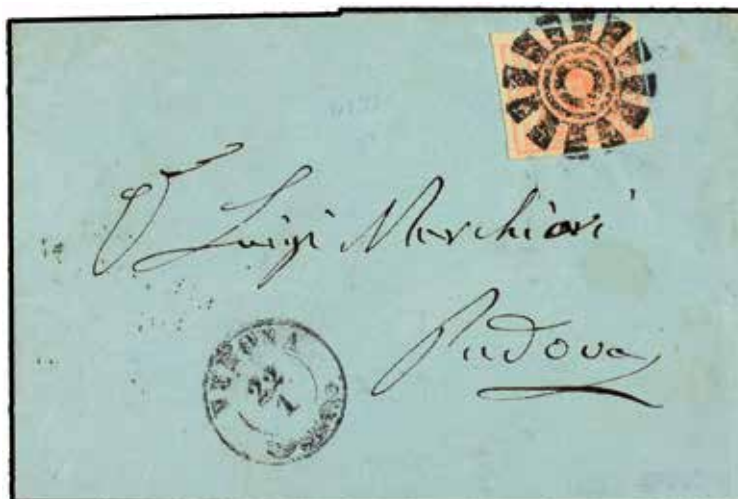 Luigi Marchiori
Padova
VERONA
22
1